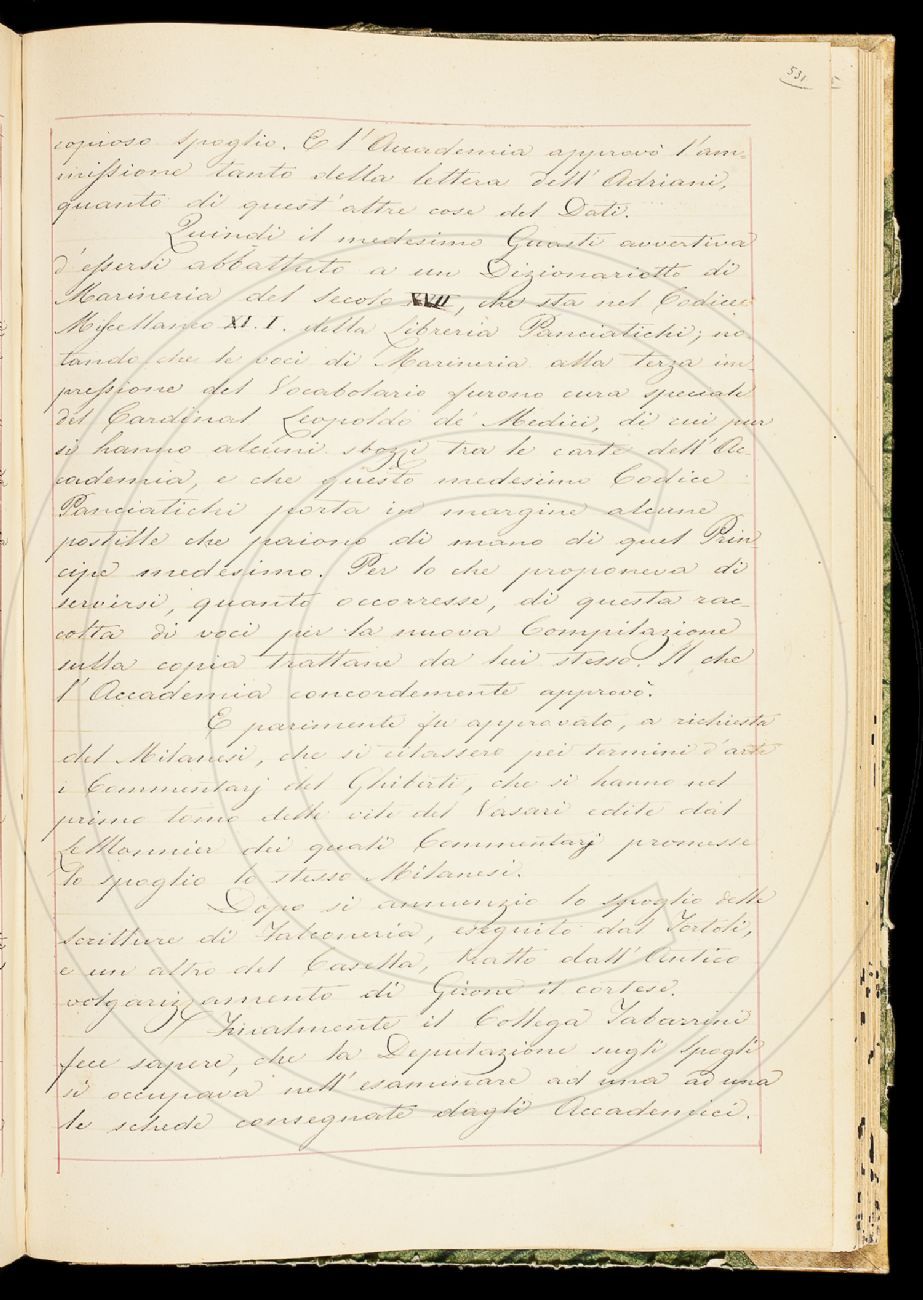 531
copioso spoglio. E l'Accademia approvò l'am-
missione tanto della lettera dell'Adriani,
quanto di quest'altre cose del Dati.
Quindi il medesimo Guasti avvertiva
d'essersi abbattuto a un Dizionarietto di
Marineria del secolo XVII, che sta nel Codice
Miscellaneo XI. I. della Libreria Panciatichi; no-
tando che le voci di Marineria alla terza im-
pressione del Vocabolario furono cura speciale
del Cardinal Leopoldo de' Medici, di cui pur
si hanno alcuni sbozzi tra le carte dell'Ac-
cademia, e che questo medesimo Codice
Panciatichi porta in margine alcune
postille che paiono di mano di quel Prin-
cipe medesimo. Per lo che proponeva di
servirsi, quanto occorresse, di questa rac-
colta di voci per la nuova Compilazione
sulla copia trattane da lui stesso. Il che
l'Accademia concordemente approvò.
E parimente fu approvato, a richiesta
del Milanesi, che si citassero pei termini d'arte
i Commentarj del Ghiberti, che si hanno nel
primo tomo delle vite del Vasari edite dal
Le Monnier dei quali Commentarj promesse
lo spoglio lo stesso Milanesi.
Dopo si annunziò lo spoglio delle
scritture di Falconeria, eseguito dal Tortoli,
e un altro del Casella, tratto dall'Antico
volgarizzamento di Girone il cortese.
Finalmente il Collega Tabarrini
fece sapere, che la Deputazione sugli Spogli
si occupava nell'esaminare ad una ad una
le schede consegnate dagli Accademici.